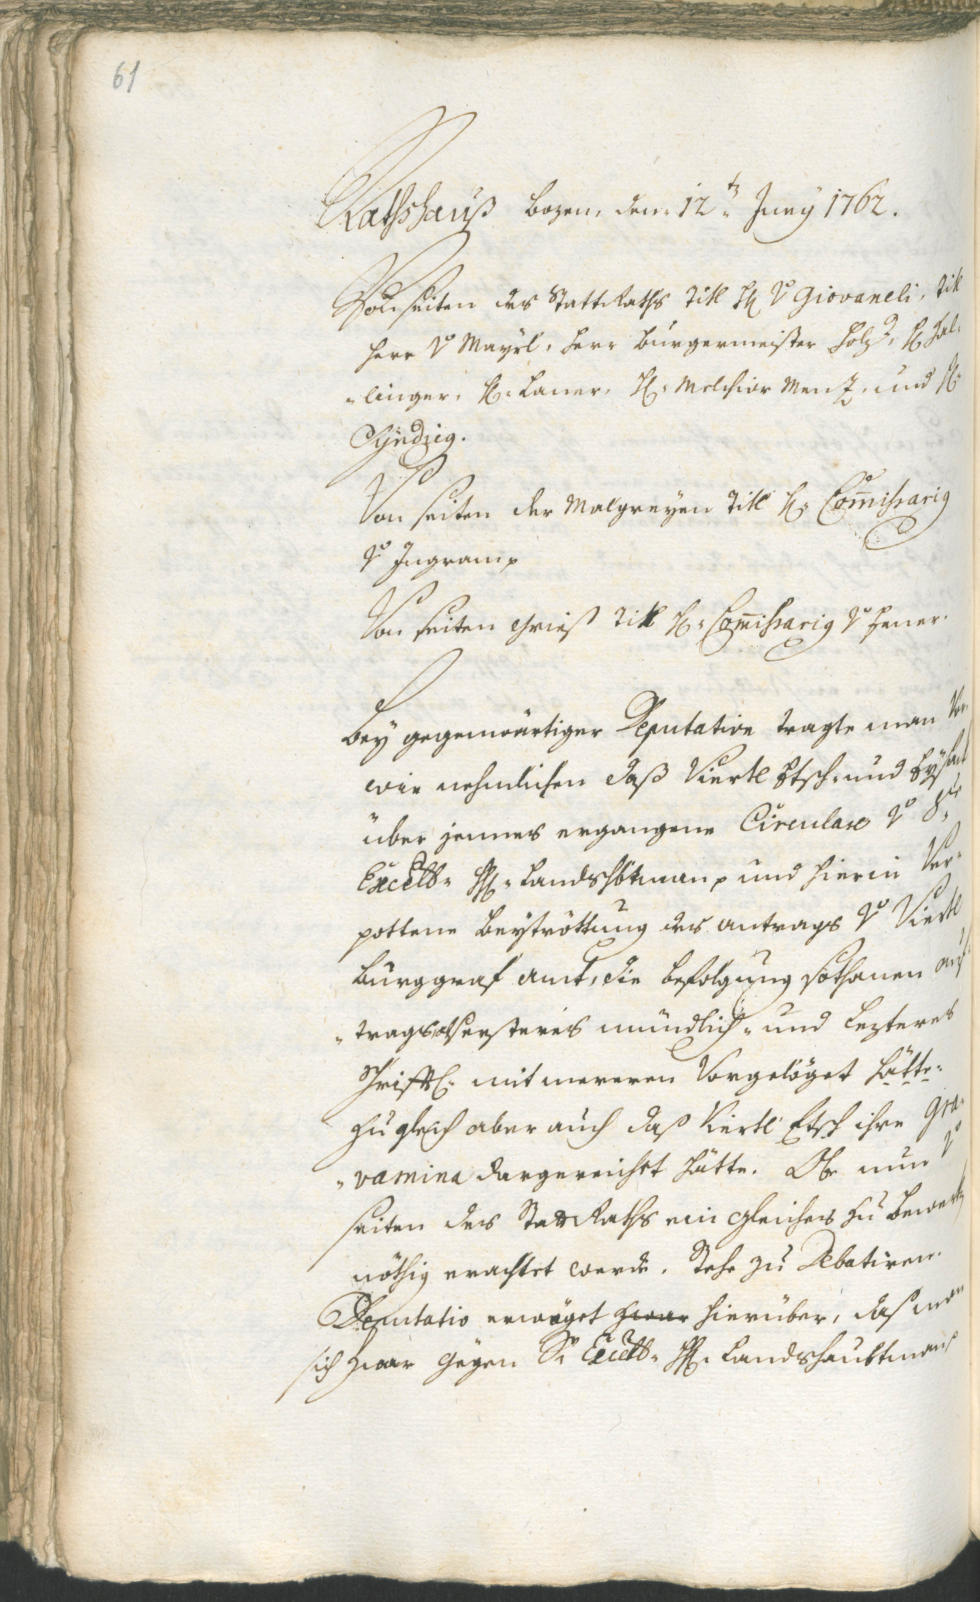 61
Rathshauß Bozen, den 12ᵗ Juny 1762.
Von seiten des Statt Raths Titl H: v Giovaneli, Titl
Herr v Mayrl, Herr Burgermeister Holz, H: Hal-
linger, H: Laner, H: Melchior Menz, und H:
Syndicg.
Von seiten der Malgreyen Titl H: Com̅issarig
v Ingram,
Von seiten Grieß Titl H: Com̅issarig v Hener.
Bey gegenwärtiger Deputation tragte man Vor,
wie nehmlichen daß Viertl Etsch- und Eysack
über jennes ergangene Circulare v Sr
Excellb: H: Landshbtman, und hierin Ver-
pottene Beytröttung des antrags v Viertl
Burggraf amt, die befolgung sothanen auf-
trags ersteres mündlich- und lezteres
schriftl: mit mereren Vorgelöget hätte:
zugleich aber auch daß Viertl Etsch ihre Gra-
vamina dargereicht hätte. Ob nun v
seiten des Statt Raths ein gleiches zu bewerk
nöthig erachtet werde. Stehe zu Debatiren.
Deputatio erwöget zwar hierüber, daß man
sich zwar gegen Sr Excellb: H: Landshaubtman